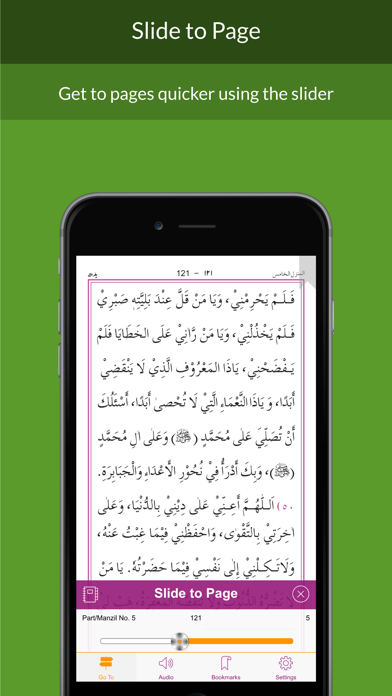 Slide to Page
Get to pages quicker using the slider
المنزل الخامس ١٢١ – 121
فَلَمْ يَحْرِمْنِيْ، وَيَا مَنْ قَلَّ عِنْدَ بَلِيَّتِهٖ صَبْرِيْ
فَلَمْ يَخْذُلْنِيْ، وَيَا مَنْ رَّانِيْ عَلَى الخَطَايَا فَلَمْ
يَفْضَحْنِيْ، يَاذَا المَعْرُوْفِ الَّذِيْ لَا يَنْقَضِيْ
أَبَدًا، وَ يَاذَا النَّعْمَاءِ الَّتِيْ لَا تُحْصىٰ أَبَدًا، أَسْئَلُكَ
أَنْ تُصَلِّيَ عَلىٰ مُحَمَّدٍ (ﷺ) وَعَلىٰ الِ مُحَمَّدٍ
(ﷺ)، وَبِكَ أَدْرَأُ فِيْ نُحُوْرِ الْأَعْدَاءِ وَالْجَبَابِرَةِ.
(٥٠) اَللّٰهُمَّ أَعِنِّيْ عَلىٰ دِيْنِيْ بِالدُّنْيَا، وَعَلىٰ
اخِرَتِيْ بِالتَّقْوٰى، وَاحْفَظْنِيْ فِيْمَا غِبْتُ عَنْهُ،
وَلَاتَكِلْنِيْ إِلىٰ نَفْسِيْ فِيْمَا حَضَرْتُهٗ. يَا مَنْ
Slide to Page
Part/Manzil No. 5 121 5
Go To Audio Bookmarks Settings